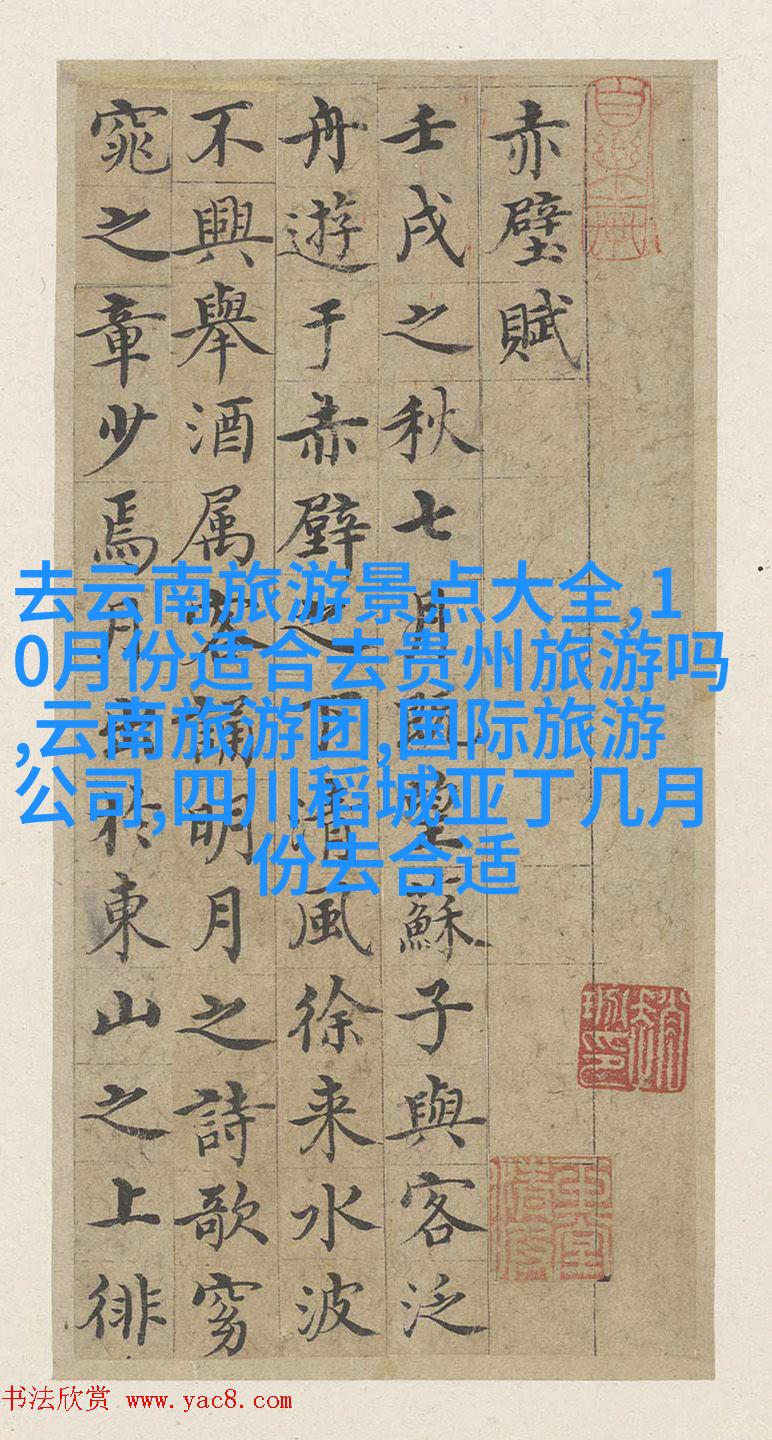 赤壁賦
壬戌之秋七月既望蘇子與客泛
舟遊于赤壁之下清風徐来水波
不興舉酒属客誦明月之詩歌窈
窕之章少焉月出於東山之上徘
去云南旅游景点大全,1
0月份适合去贵州旅游吗
,云南旅游团,国际旅游
公司,四川稻城亚丁几月
份去合适
书法欣赏 www.yac8.com